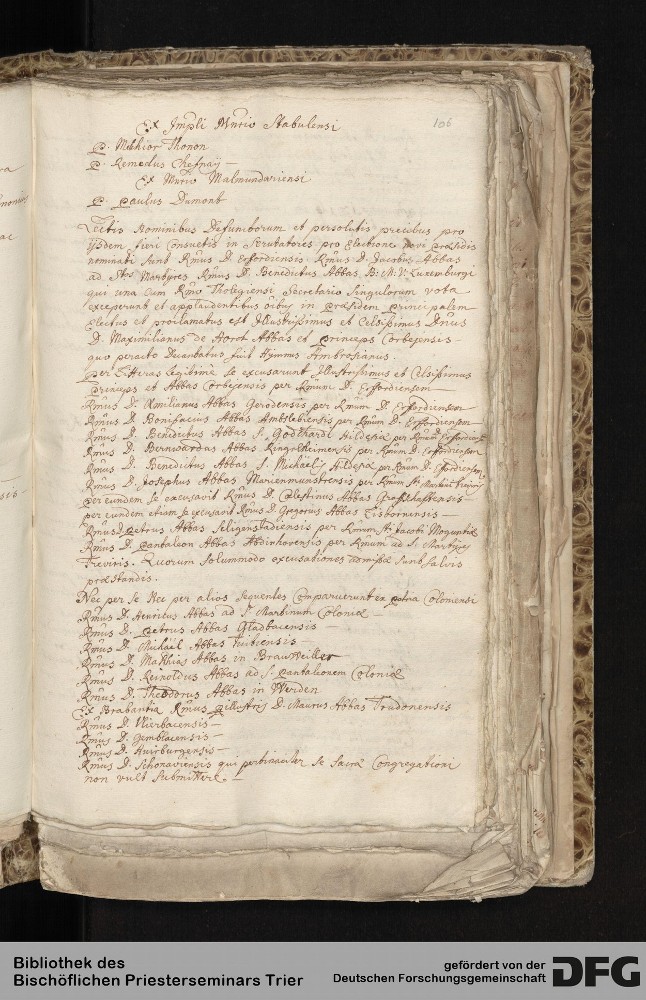 Ex Impli Mnrio Stabulensi
106
P. Melchior Thonon
P. Remaclus Chefnay —
Ex Mnrio Malmundariensi
P. Paulus Dumont
Lectis Nominibus Defunctorum et persolutis precibus pro
ijsdem fieri consuetis in Scrutatores pro Electione Novi Præsidis
nominati sunt Rmus D. Erfordiensis Rmus D. Jacobus Abbas
ad Stos Martyres Rmus D. Benedictus Abbas B. M. V. Luxemburgi
qui una cum Rmo Tholegiensi Secretario Singulorum vota
exceperunt et applaudentibus oibus in Præsidem principalem
Electus et proclamatus est Illustrissimus et Celsissimus Dnus
D. Maximilianus de Horst Abbas et princeps Corbejensis
quo peracto Decantatus fuit Hymnus Ambrosianus.
Per Litteras legitimè se excusarunt Illustrissimus et Celsissimus
Princeps et Abbas Corbejensis per Rmum D. Erfordiensem
Rmus D. Æmilianus Abbas Gerodensis per Rmum D. Erfordiensem
Rmus D. Bonifacius Abbas per Rmum D. Erfordiensem
Rmus D. Benedictus Abbas S. Godthardi Hildesiæ per Rmum D.
Rmus D. Bernwardus Abbas Ringelheimensis per Rmum D. Erfordiensem
Rmus D. Benedictus Abbas S. Michaelis Hildesiæ per Rmum D.
Rmus D. Josephus Abbas Marienmunstrensis per Rmum St.
per eundem se excusavit Rmus D. Cælestinus Abbas
per eundem etiam se excusavit Rmus D. Gregorius Abbas Lisbornensis —
Rmus D. Petrus Abbas Seligenstadiensis per Rmum St. Jacobi Moguntiæ
Rmus D. Pantaleon Abbas Abdinhovensis per Rmum ad St. Martyres
Treviris. Quorum solummodo excusationes admissæ sunt salvis
præstandis.
Nec per se Nec per alios sequentes comparuerunt ex patria Coloniensi
Rmus D. Henricus Abbas ad St. Martinum Coloniæ —
Rmus D. Petrus Abbas Gladbacensis —
Rmus D. Michael Abbas Tuitiensis —
Rmus D. Mathias Abbas in Brauweiller
Rmus D. Reinoldus Abbas ad S. Pantaleonem Coloniæ
Rmus D. Theodorus Abbas in Werden
Ex Brabantia Rmus D. Maurus Abbas Trudonensis
Rmus D. Vlierbacensis —
Rmus D. Gemblacensis —
Rmus D.
Rmus D. Schonaviensis qui pertinaciter se sacræ Congregationi
non vult submittere. —
Bibliothek des
Bischöflichen Priesterseminars Trier
gefördert von der
Deutschen Forschungsgemeinschaft
DFG